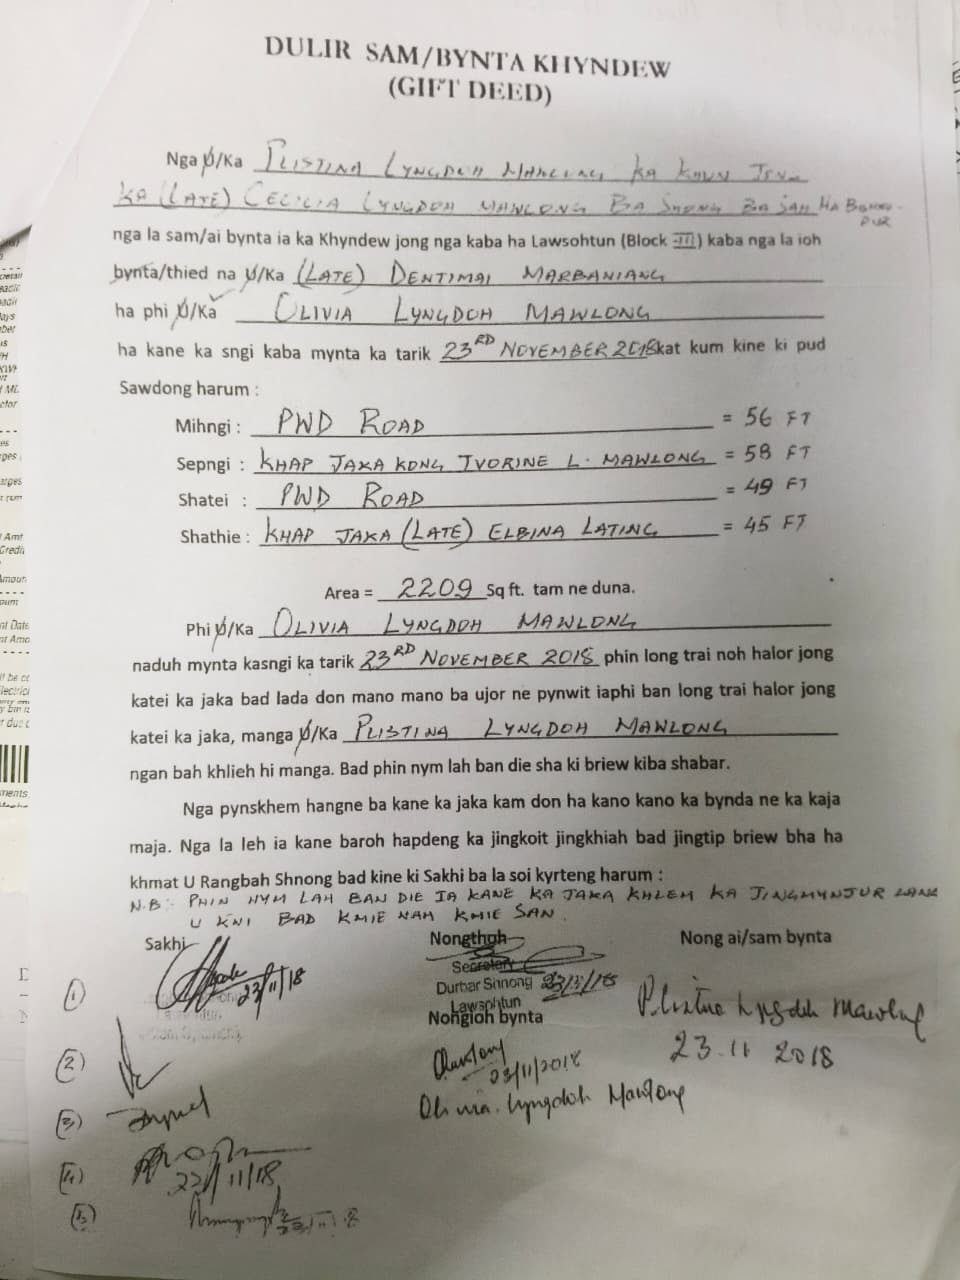 DULIR SAM/BYNTA KHYNDEW
(GIFT DEED)
Nga U/Ka PLISTINA LYNGDOH MAWLONG KA KHUN
KA (LATE) CECILIA LYNGDOH MAWLONG BA SHONG BA SAH HA
nga la sam/ai bynta ia ka Khyndew jong nga kaba ha Lawsohtun (Block -III) kaba nga la ioh
bynta/thied na U/Ka (LATE) DENTIMAI MARBANIANG
ha phi U/Ka OLIVIA LYNGDOH MAWLONG
ha kane ka sngi kaba mynta ka tarik 23RD NOVEMBER 2018 kat kum kine ki pud
Sawdong harum :
Mihngi : PWD ROAD = 56 FT
Sepngi : KHAP JAKA KONG IVORINE L. MAWLONG = 58 FT
Shatei : PWD ROAD = 49 FT
Shathie : KHAP JAKA (LATE) ELBINA LATING = 45 FT
Area = 2209 Sq ft. tam ne duna.
Phi U/Ka OLIVIA LYNGDOH MAWLONG
naduh mynta kasngi ka tarik 23RD NOVEMBER 2018 phin long trai noh halor jong
katei ka jaka bad lada don mano mano ba ujor ne pynwit iaphi ban long trai halor jong
katei ka jaka, manga U/Ka PLISTINA LYNGDOH MAWLONG
ngan bah khlieh hi manga. Bad phin nym lah ban die sha ki briew kiba shabar.
Nga pynskhem hangne ba kane ka jaka kam don ha kano kano ka bynda ne ka kaja
maja. Nga la leh ia kane baroh hapdeng ka jingkoit jingkhiah bad jingtip briew bha ha
khmat U Rangbah Shnong bad kine ki Sakhi ba la soi kyrteng harum :
N.B :- PHIN NYM LAH BAN DIE IA KANE KA JAKA KHLEM KA JINGMYNJUR
U KNI BAD KMIE NAH KMIE SAN.
Sakhi Nongthoh Nong ai/sam bynta
Secretary
(1) 23/11/18 Durbar Shnong 23/11/18
Lawsohtun
Nongioh bynta
Plistina Lyngdoh Mawlong
23.11 2018
(2)
23/11/2018
Olivia Lyngdoh Mawlong
(3)
(4)
22/11/18
(5)